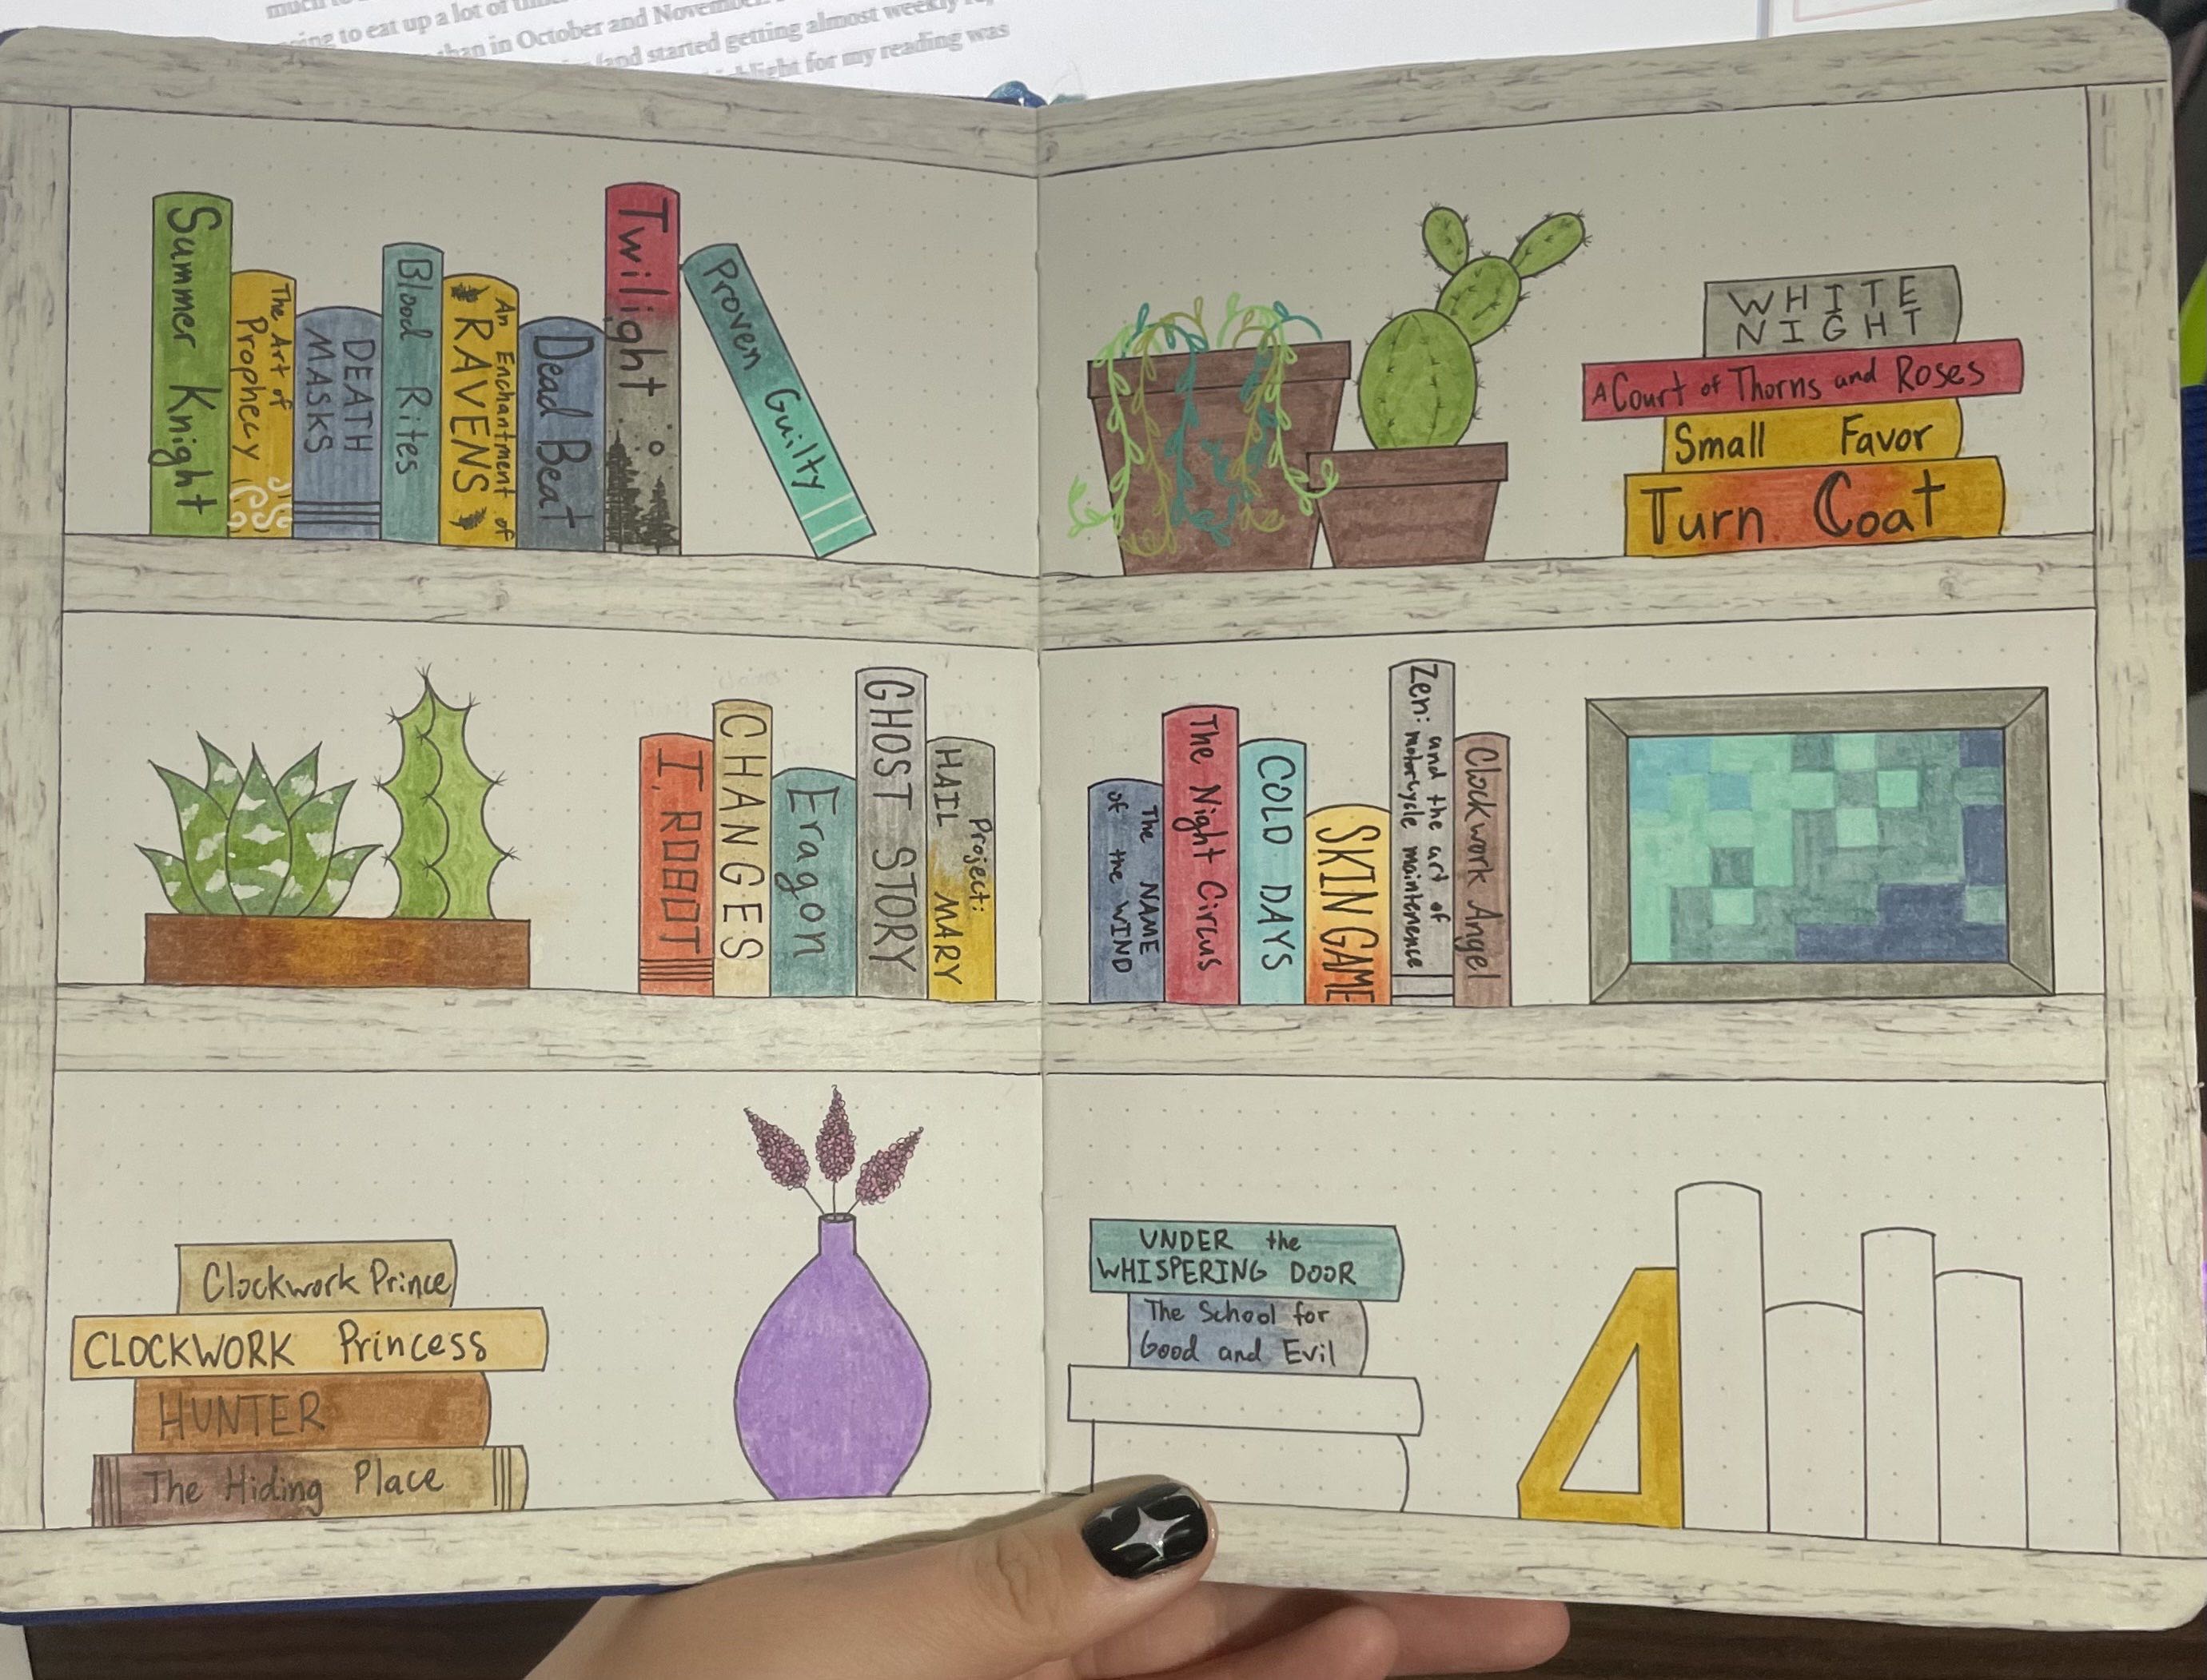 going to eat up a lot of
than in October and November
and started getting almost weekly
for my reading was
Summer Knight
The Art of
Prophecy
DEATH
MASKS
Blood Rites
An Enchantment of
RAVENS
Dead Beat
Twilight
Proven Guilty
WHITE
NIGHT
A Court of Thorns and Roses
Small Favor
Turn Coat
I, ROBOT
CHANGES
Eragon
GHOST STORY
Project:
HAIL MARY
The NAME
of the WIND
The Night Circus
COLD DAYS
SKIN GAME
Zen: and the art of
motorcycle maintenence
Clockwork Angel
Clockwork Prince
CLOCKWORK Princess
HUNTER
The Hiding Place
UNDER the
WHISPERING DOOR
The School for
Good and Evil